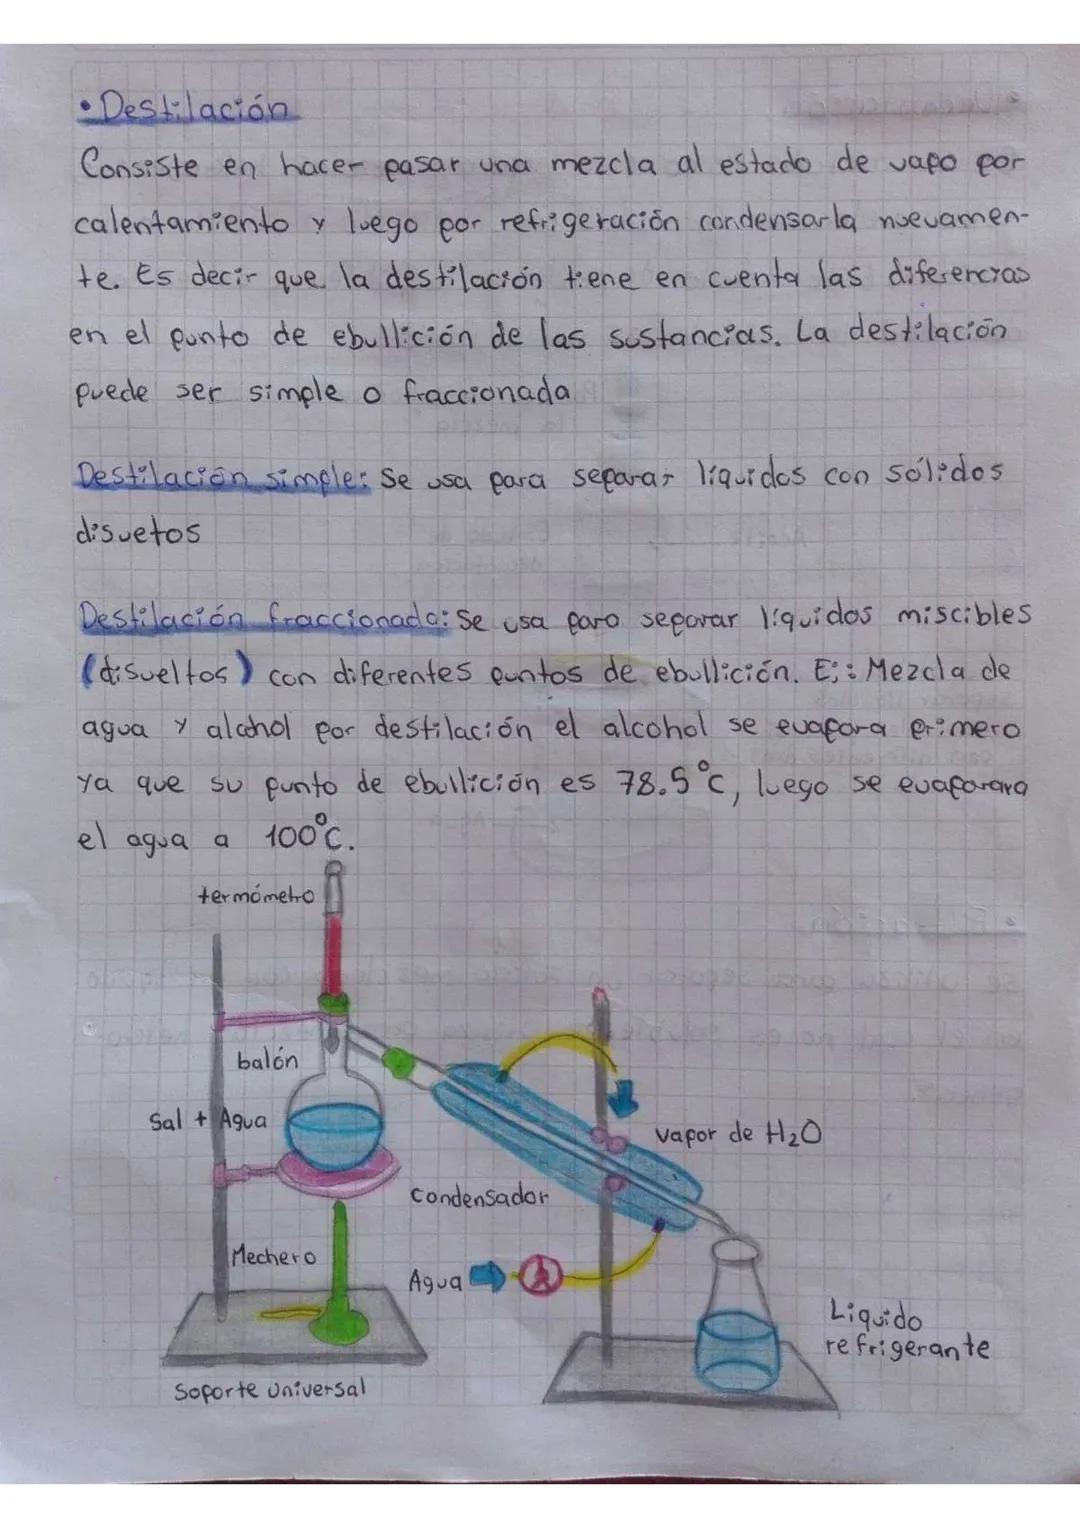 • Destilación
Consiste en hacer pasar una mezcla al estado de vapo por
calentamiento y luego por refrigeración condensarla nuevamen-
te. Es decir que la destilación tiene en cuenta las diferencias
en el punto de ebullición de las sustancias. La destilación
puede ser simple o fraccionada
Destilación simple: Se usa para separar líquidos con sólidos
disuetos
Destilación fraccionada: Se usa para separar líquidos miscibles
(disueltos) con diferentes puntos de ebullición. Ej: Mezcla de
agua y alcohol por destilación el alcohol se evapora primero
ya que su punto de ebullición es 78.5°C, luego se evaporara
el agua a 100°C.
termómetro
balón
Sal + Agua
vapor de H₂O
Condensador
Mechero
Agua
Liquido
refrigerante
Soporte universal